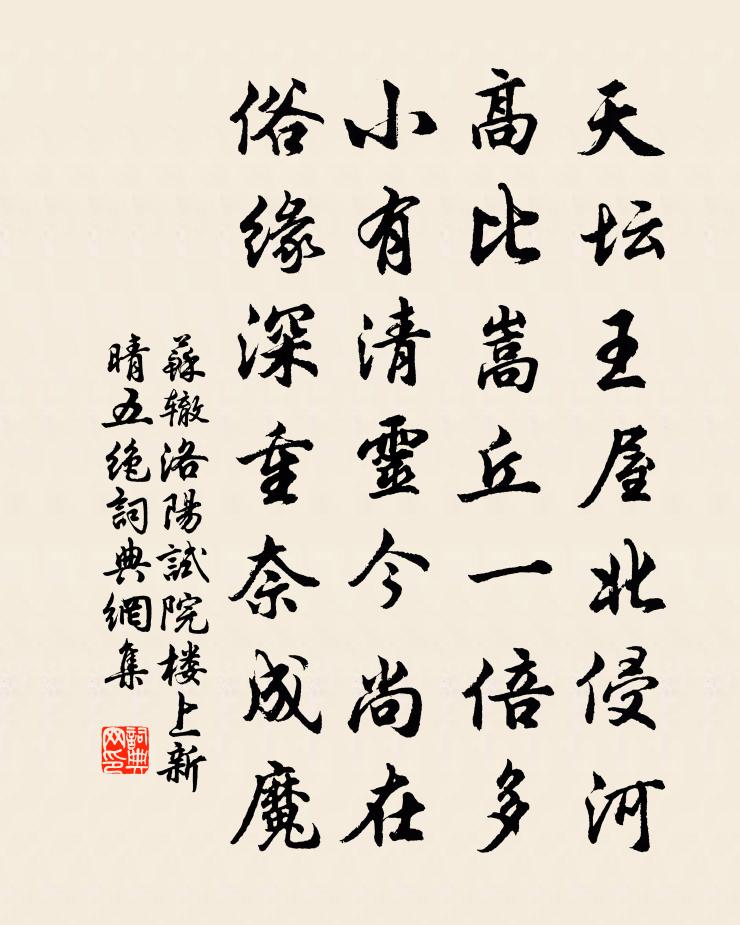 天坛王屋北侵河
高比嵩丘一倍多
小有清靈今尚在
俗缘深重奈成魔
蘇辙洛陽試院楼上新
晴五絶詞典網集
詞典
网印